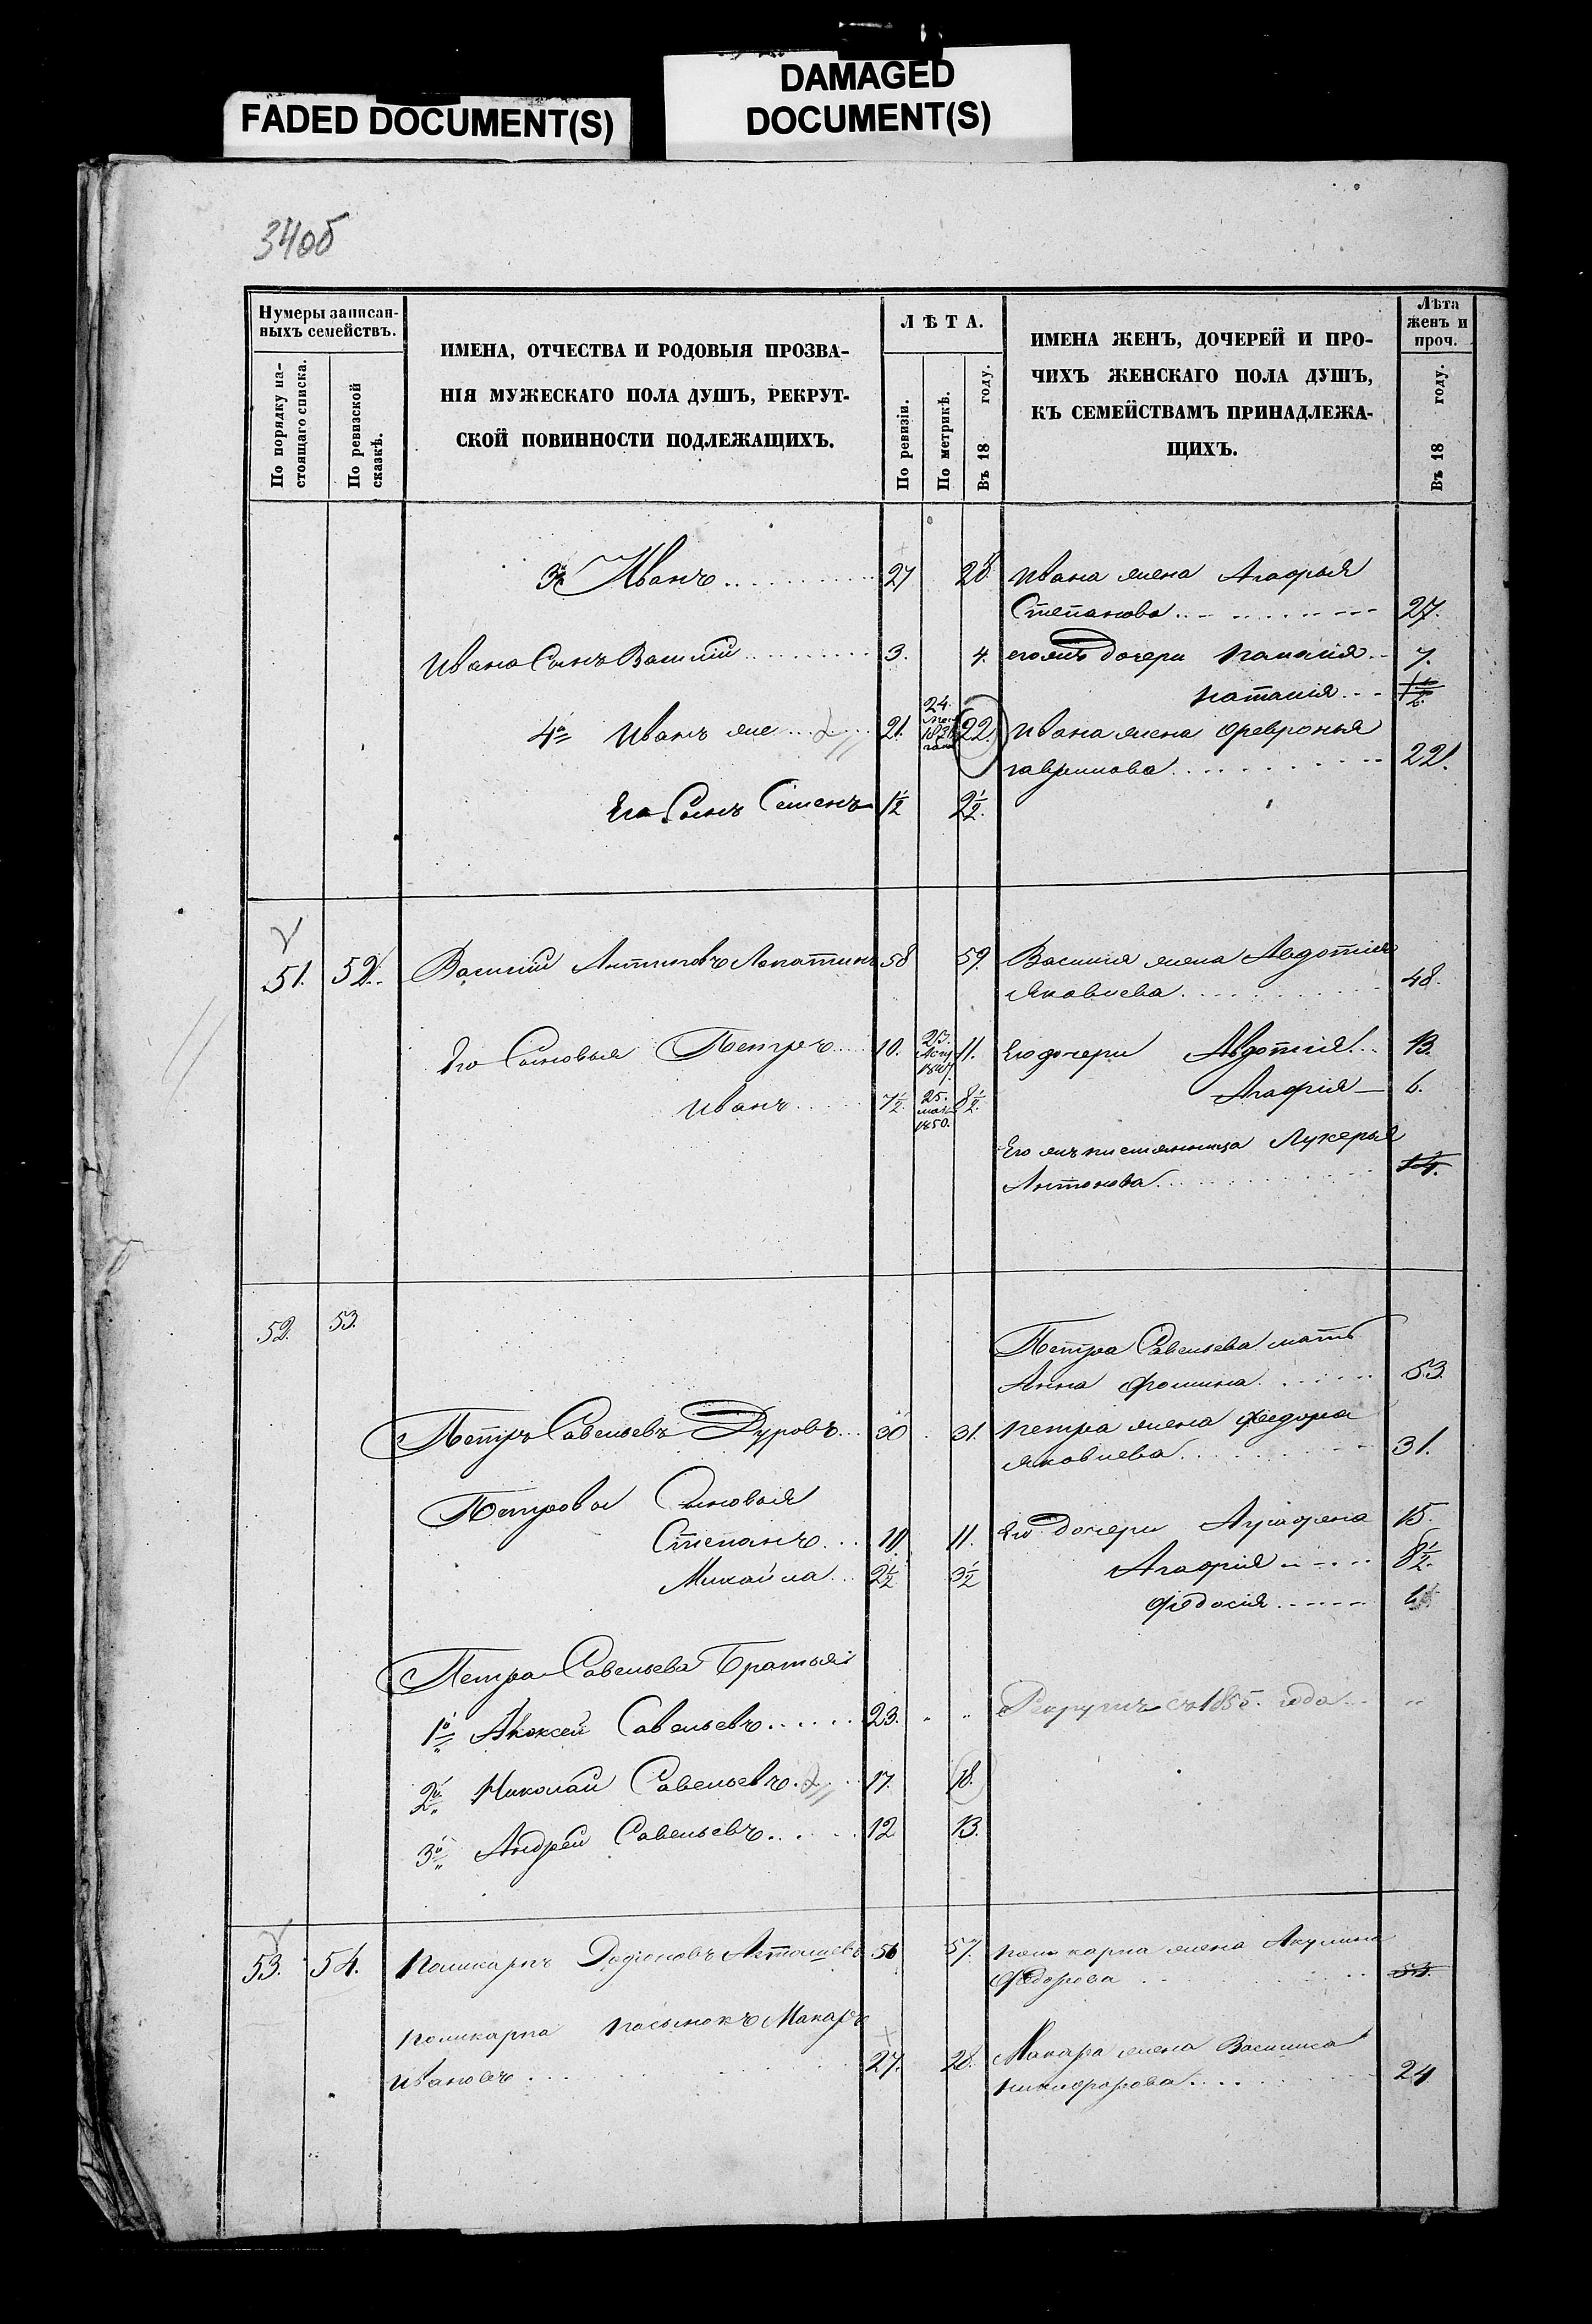 FADED DOCUMENT(S)
DAMAGED
DOCUMENT(S)
34об
Нумеры записан-
ныхъ семействъ.
По порядку на-
стоящаго списка.
По ревизской
сказкѣ.
ИМЕНА, ОТЧЕСТВА И РОДОВЫЯ ПРОЗВА-
НІЯ МУЖЕСКАГО ПОЛА ДУШЪ, РЕКРУТ-
СКОЙ ПОВИННОСТИ ПОДЛЕЖАЩИХЪ.
ЛѢТА.
По ревизіи.
По метрикѣ.
Въ 18 году.
ИМЕНА ЖЕНЪ, ДОЧЕРЕЙ И ПРО-
ЧИХЪ ЖЕНСКАГО ПОЛА ДУШЪ,
КЪ СЕМЕЙСТВАМЪ ПРИНАДЛЕЖА-
ЩИХЪ.
Лѣта
женъ и
проч.
Въ 18 году.
3й Иванъ 27 28 Ивана жена Агафья
Степанова 27.
Ивана Сынъ Василій 3. 4. его жъ дочери 7.
Наталія 1½
4й Иванъ же 21. 24 22. Ивана жена Февронья
Гаврилова 22.
Его Сынъ Семенъ 1½ 2½.
51. 52. Василій Антиповъ Лопатинъ 58 59. Василія жена Авдотья
Яковлева 48.
Его Сыновья Петръ 10. 23. 1847. 11. Его дочери Авдотія 13.
Иванъ 7½. 25. мая 1850. 8½. Агафія 6.
Его жъ племянница Лукерья
Антонова 14.
52. 53. Петра Савельева мать
Анна Фомина 53.
Петръ Савельевъ Дуровъ 30 31. Петра жена Федора
Яковлева 31.
Петровы Сыновья
Степанъ 10 11. Его дочери Аграфена 15.
Михайла 2½ 3½ Агафія 8½.
Федосія
Петра Савельева Братья
1й Алексей Савельевъ 23. Рекрутъ съ 1855. года
2й Николай Савельевъ 17. 18.
3й Андрей Савельевъ 12 13.
53. 54. Поликарпъ 56 57. Поликарпа жена Акулина
Федорова
Поликарпа пасынокъ Макаръ
Ивановъ 27. 28. Макара жена Василиса
Никифорова 24